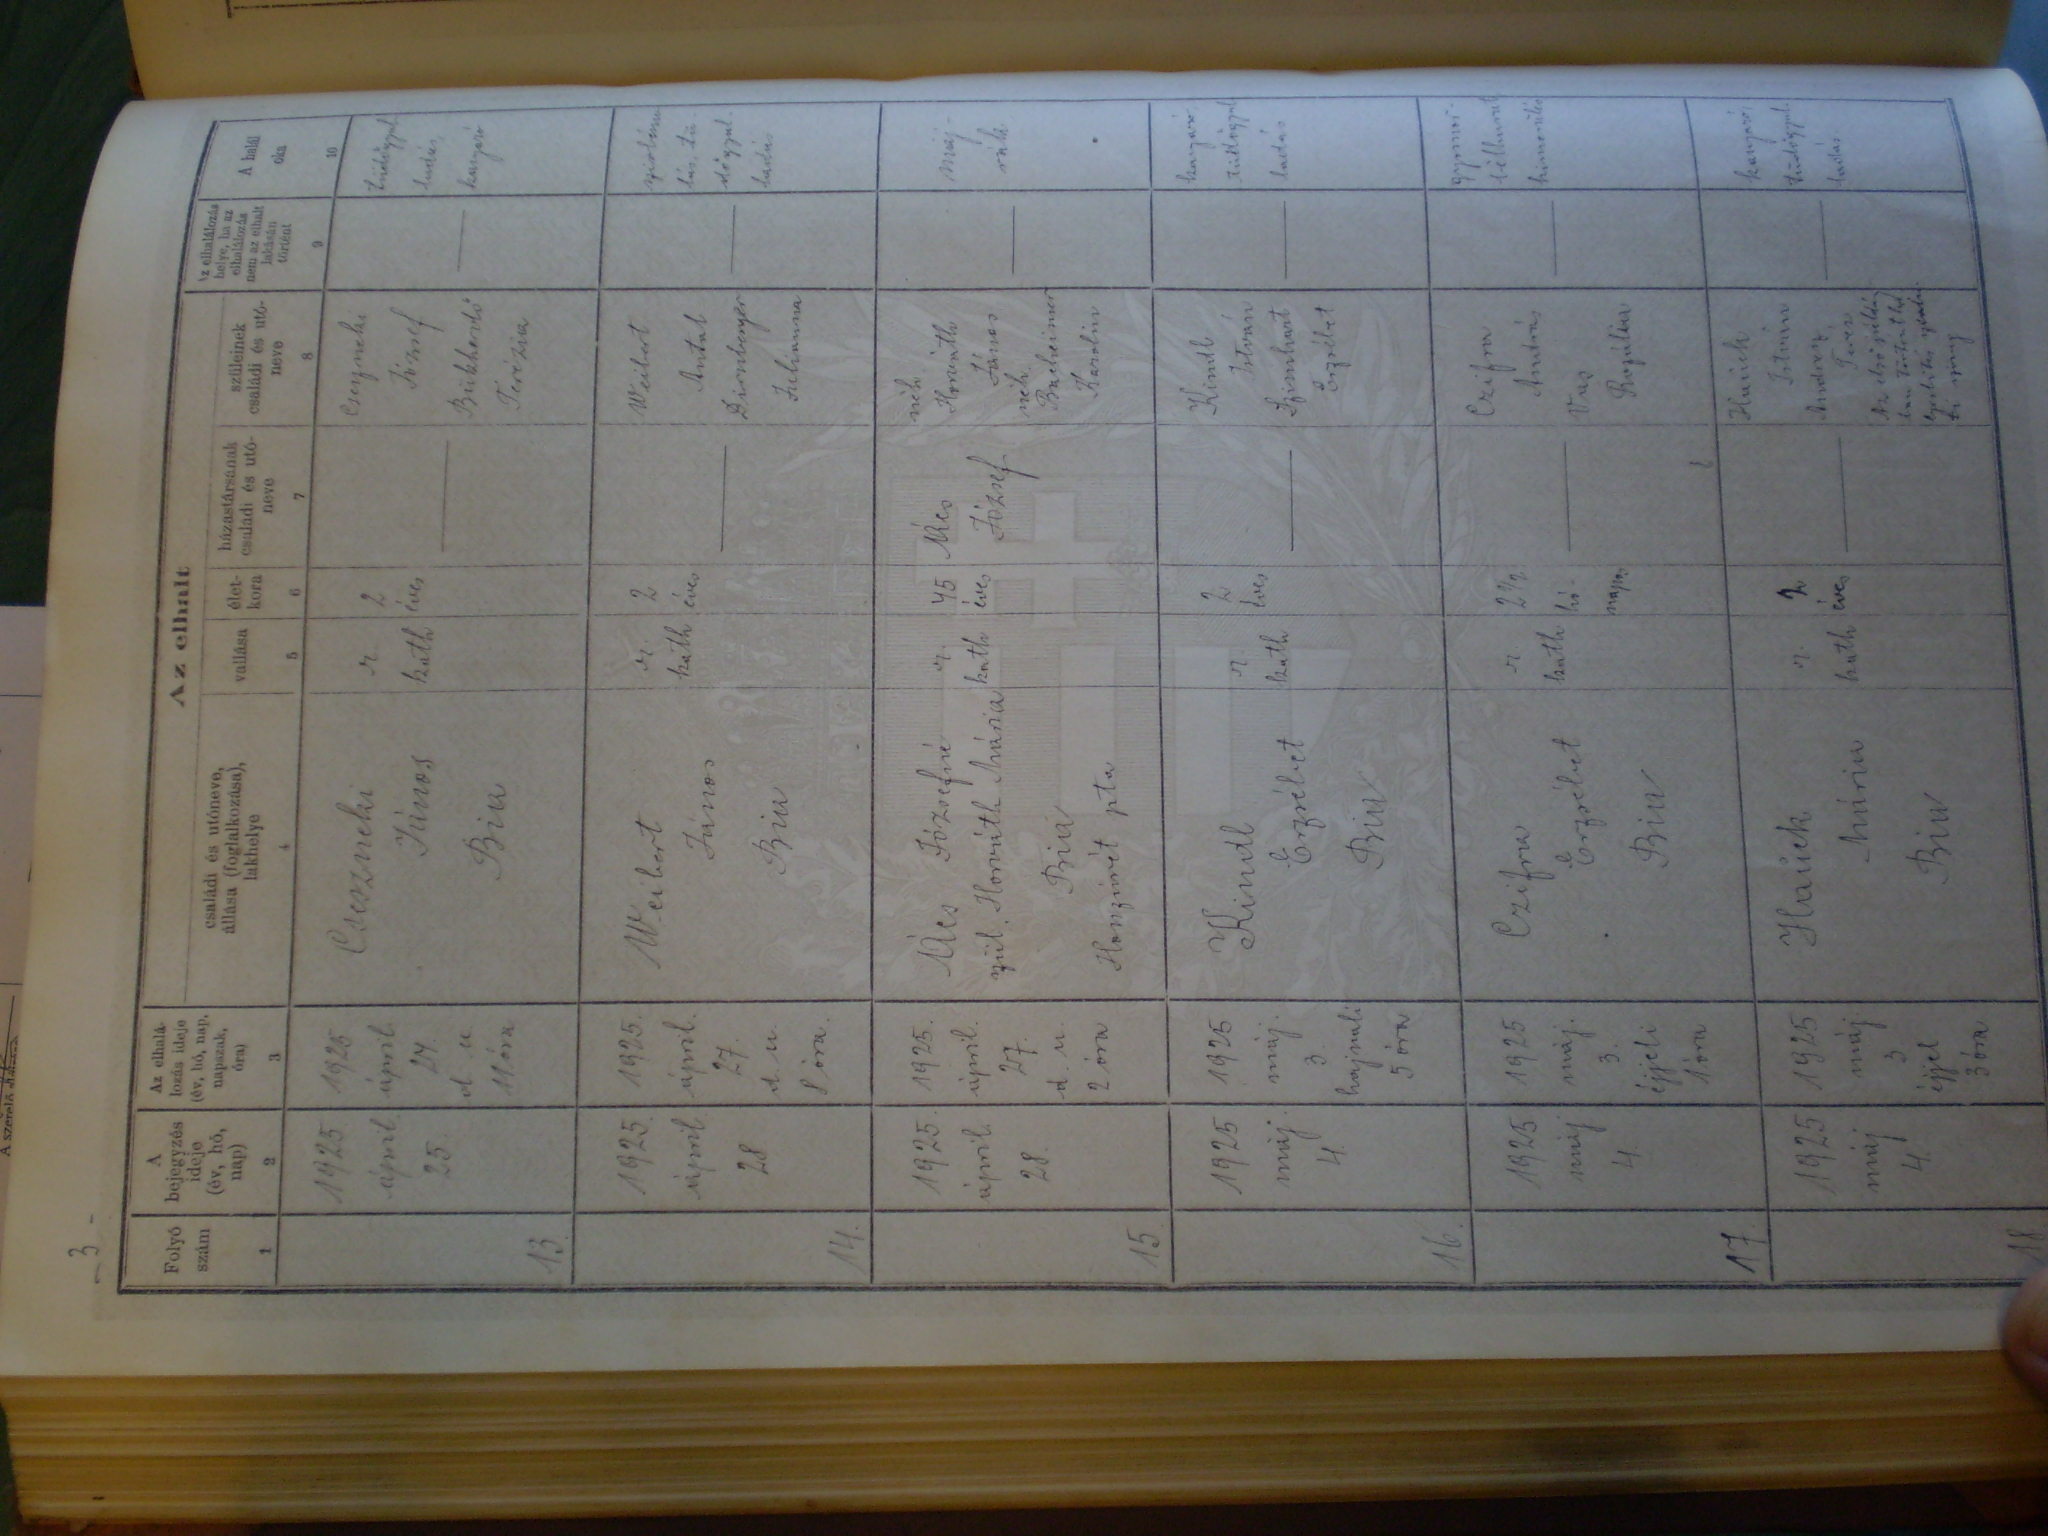 - 3 -
Az elhalt
Folyó
szám
A
bejegyzés
ideje
(év, hó,
nap)
Az elhalá-
lozás ideje
(év, hó, nap,
napszak,
óra)
családi és utóneve,
állása (foglalkozása),
lakhelye
vallása
élet-
kora
házastársának
családi és utó-
neve
szüleinek
családi és utó-
neve
Az elhalálozás
helye, ha az
elhalálozás
nem az elhalt
lakásán
történt
A halál
oka
1
2
3
4
5
6
7
8
9
10
13.
1925
ápril.
25.
1925
ápril.
24.
d. u.
11 óra
Cseszneki
János
Bia
r.
kath
2
éves
Csezneki
József
Bükkerdő
Terézia
tüdőgyul-
ladás,
kanyaró
14.
1925.
ápril
28
1925.
ápril.
27.
d. u.
8 óra.
Weibert
János
Bia
r.
kath
2
éves
Weibert
Antal
Dirnberger
Juhanna
dőgyul-
ladás
15.
1925.
ápril.
28.
1925.
ápril.
27.
d. u.
2 óra
Ács Józsefné
szül. Horváth Mária
Bia
Herczirét pta
r.
kath
45
éves
Ács
József
néh.
Horváth
János
néh.
Karolin
máj-
rák
16.
1925
máj.
4.
1925
máj.
3.
hajnali
5 óra
Kindl
Erzsébet
Bia
r.
kath
2
éves
Kindl
István
Erzsébet
kanyaró,
tüdőgyul-
ladás
17.
1925
máj
4.
1925
máj.
3.
éjjeli
1 óra
Czifra
Erzsébet
Bia
r.
kath
2 1/2
hó-
napos
Czifra
András
Vas
Rozália
18
1925
máj
4.
1925
máj.
3
éjjel
3 óra
Hauck
Mária
Bia
r.
kath
2
éves
Hauck
István
Teréz
kanyaró,
tüdőgyul-
ladás